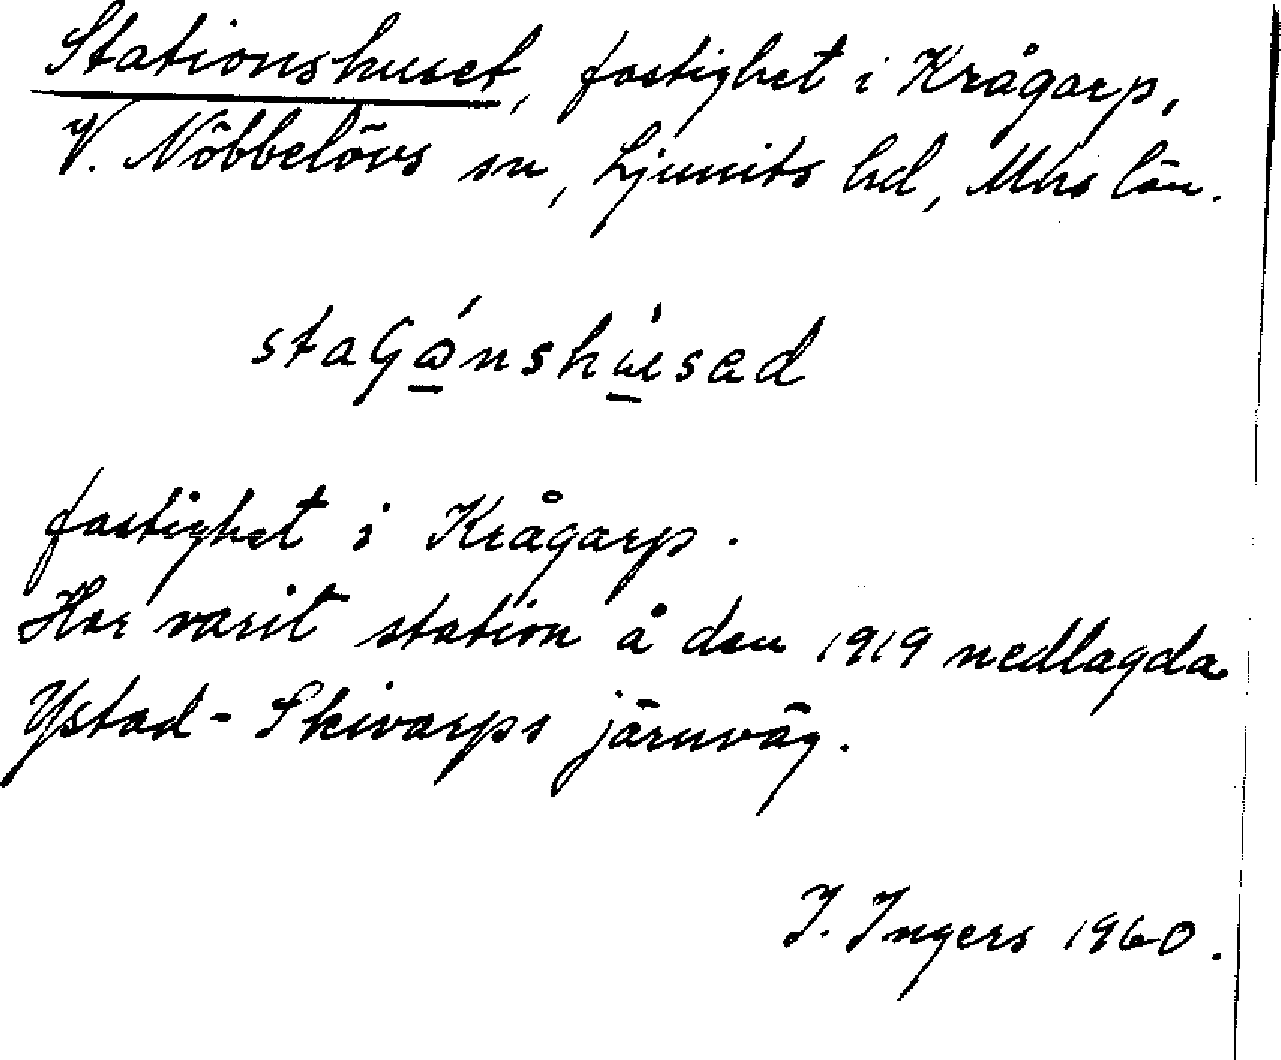 Stationshuset, fastighet i Krågarp,
V. Nöbbelövs sn, Ljunits hd, Mhs län.
fastighet i Krågarp.
Har varit station å den 1919 nedlagda
Ystad - Skivarps järnväg.
I. Ingers 1960.